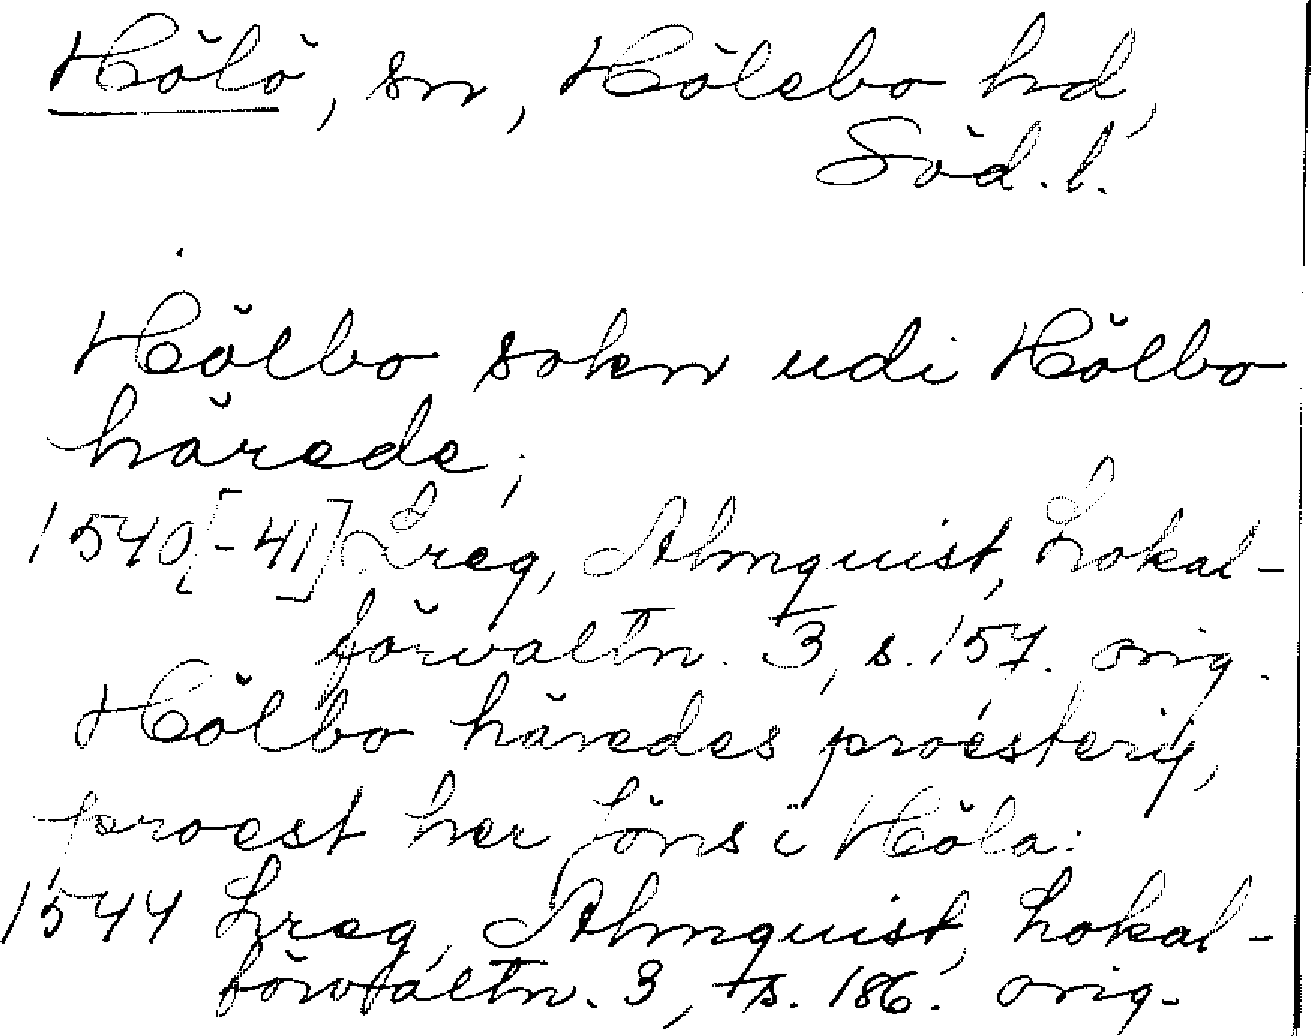 Hölö, sn, Hölebo hd,
Söd. l.
Hölbo sokn udi Hölbo
härede;
1540[-41] Lreg, Almquist, Lokal-
förvaltn. 3, s. 157. orig.
Hölbo häredes proesterij,
proest her Jöns i Höla:
1544 Lreg, Almquist, Lokal-
förvaltn. 3, s. 186. orig.